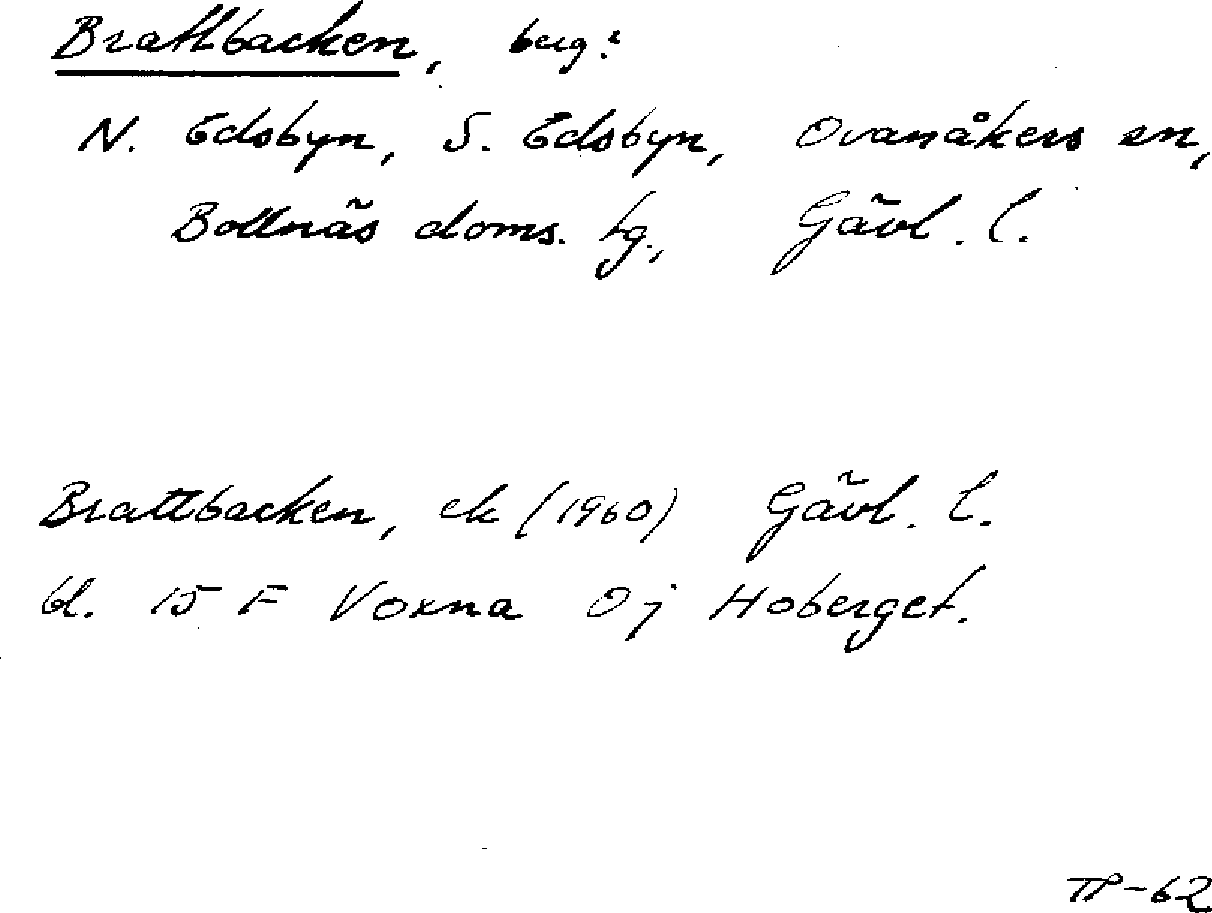 Brattbacken, berg?
N. Edsbyn, S. Edsbyn, Ovanåkers sn,
Bollnäs doms. tg., Gävl. l.
Brattbacken, ek (1960) Gävl. l.
bl. 15 F Voxna 0j Hoberget.
TP-62